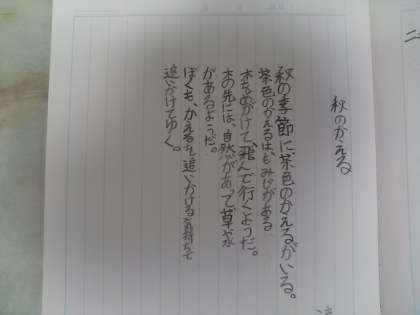 秋のかえる
秋の季節に茶色のかえるがいる。
茶色のかえるは、もみじがある
木をめがけて、飛んで行くようだ。
木の先には、自然があって草や木
があるようだ。
ぼくも、かえるを追いかける気持ちで
追いかけてゆく。